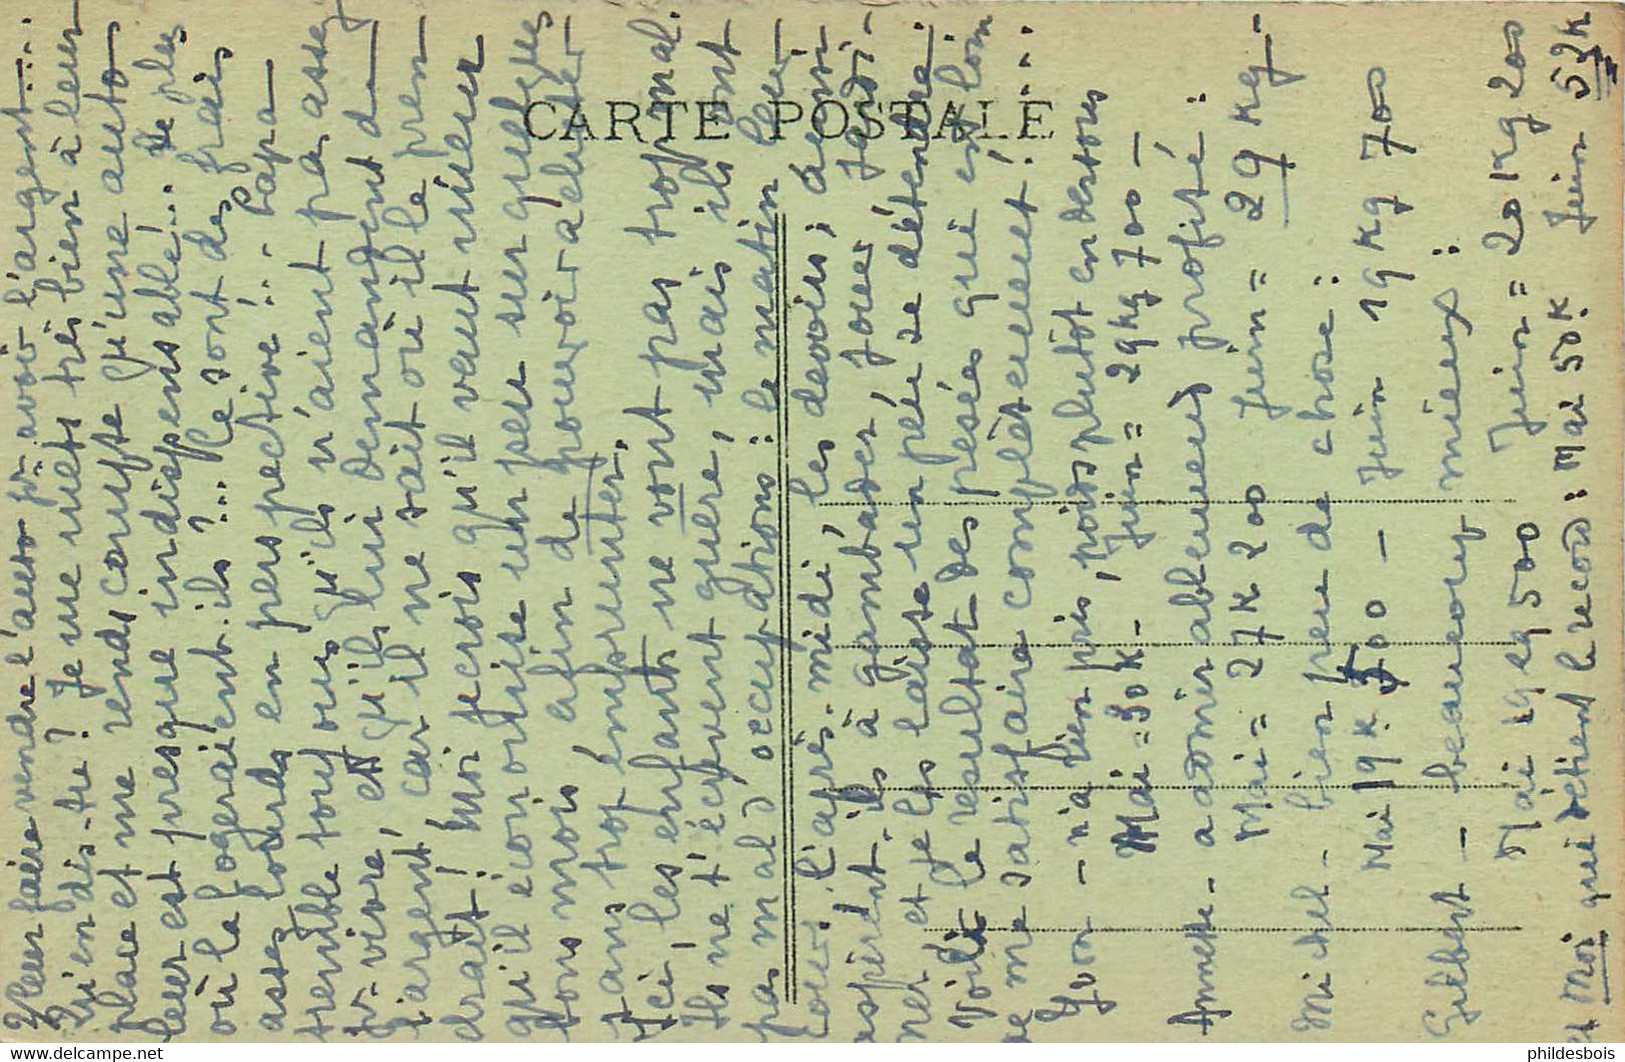 leur faire vendre l'auto pr. avoir l'argent....
Qu'en dis-tu? Je me mets très bien à leur
place et me rends compte qu'une auto
leur est presque indispensable!... De plus
où la logeraient-ils?... Ce sont des frais
assez lourds en perspective!... Papa
tremble toujours qu'ils n'aient pas assez
pr. vivre, et qu'ils lui demandent de
l'argent, car il ne sait où il le pren
drait! Moi je crois qu'il vaut mieux
qu'il économise un peu sur quelques
bons mois afin de pouvoir acheter
sans trop emprunter.
Ici, les enfants ne vont pas trop mal.
Ils ne t'écrivent guère, mais ils ont
pas mal d'occupations: le matin leur
cour, l'après-midi, les devoirs; aussi
aspirent-ils à gambader, jouer, jardi-
ner et je les laisse un peu se détendre.
Voilà le résultat des pesées qui est loin
de me satisfaire complètement!....
Yvon - n'a rien pris, poids plutôt en dessous
Mai = 30 K - Juin = 29 Kg 700 -
Annette - a admirablement profité:
Mai = 27 K 200 Juin = 29 Kg -
Michel - bien peu de chose:
Mai 19 K 500 - Juin 19 Kg 700
Gilbert - beaucoup mieux:
Mai 19 Kg 500 Juin = 20 Kg 200
et Moi qui détient le record: Mai 50 K. Juin 52 K
CARTE POSTALE
https://www.delcampe.net
phildesbois